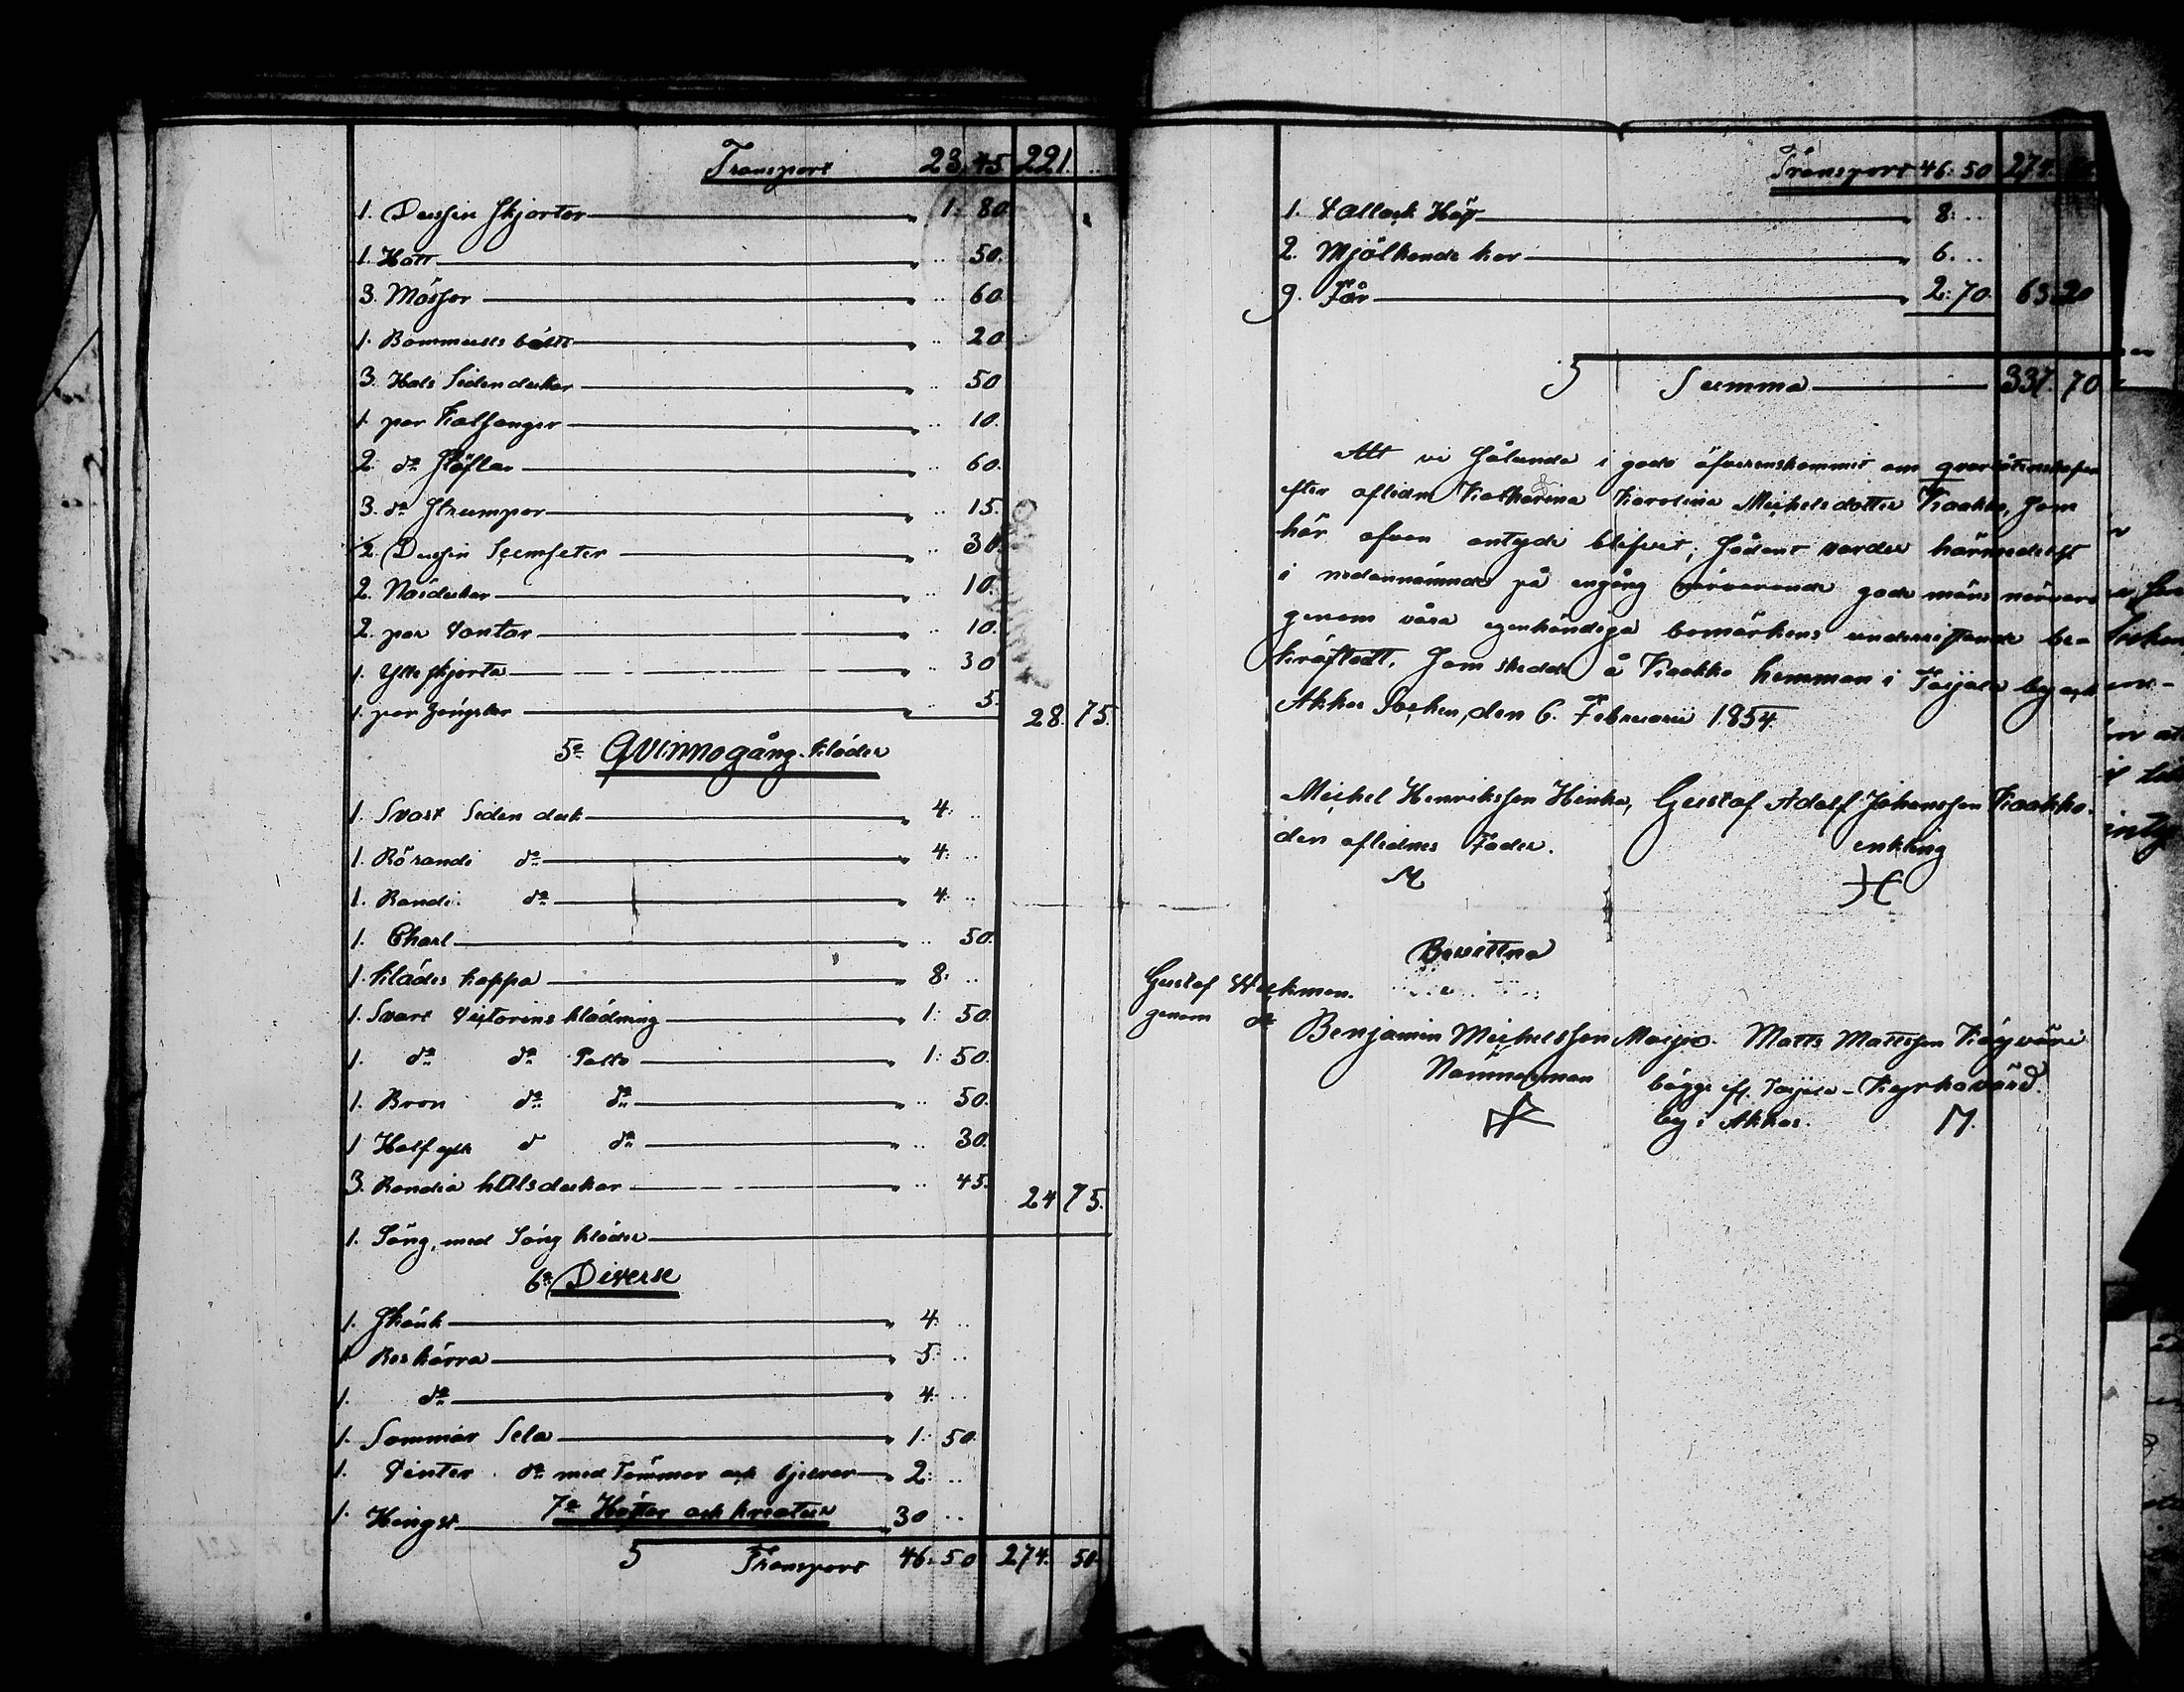 Transport 23. 45 221. ..
1. Dussin Skjortor 1: 80
1. Hatt .. 50.
3. Mössor .. 60
1. Bommulls bälte .. 20
3. Hals Sidendukar .. 50
1. par Kalfanger .. 10.
2. do Stöflar .. 60.
3. do Strumpor .. 15.
1/2 Dussin Seemseter .. 30.
2. Näsdukar .. 10.
2. par Vantar .. 10.
1. Ylle skjorta .. 30
1. par .. 5. 28. 75.
5o Qvinnogång-kläder
1. Svart Siden duk 4: ..
1. Rörandi do 4: ..
1. Randi do 4. ..
1. Charl .. 50.
1. Klädes kappa 8: ..
1. Svart Victorins klädning 1: 50.
1. do do Palto 1: 50.
1. Bron do do .. 50.
1 Half ylle d do .. 30.
3. Randia halsdukar .. 45. 24 75.
1. Säng, med Säng kläder
6o Diverse
1. Skänk 4: ..
1 Reskärra 5: ..
1. do 4: ..
1. Sommar Sela 1: 50.
1. Vinter do med Tömmar och bjelror 2: ..
7o Hästar och kreatur
1. Hingst 30 ..
5 Transport 46. 50 274. 50.
Transport 46: 50 274. 50.
1. Vallack Häst 8: ..
2. Mjölkande kor 6. ..
9. Får 2: 70. 63. 20
5 Summa 337. 70
Att vi Sålunda i godo äfverenskommit om qvarlåtenskapen
efter aflidne Katharina Karolina Michelsdotter Kaakko, Som
här ofvan antydt blifvit; Sådant varder härmedelst
i nedannämnde på engång närvarande gode mäns närvaro
genom våra egenhändiga bomärkens underrissande be-
kräftadt. Som skedde å Kaakko hemman i Taijala by och
Akkas Socken, den 6. Februarii 1854.
Michel Henriksson Heinka, Gustaf Adolf Johansson Kaakko.
den aflidnes Fader. enkling
M
Bevittna
Gustaf Heckman.
genom do
Benjamin Michelsson Maijo. Matts Mattsson Käyväri
Nämnaman bägge fr. Taijala- Kyrkovärd.
by i Akkas. M.